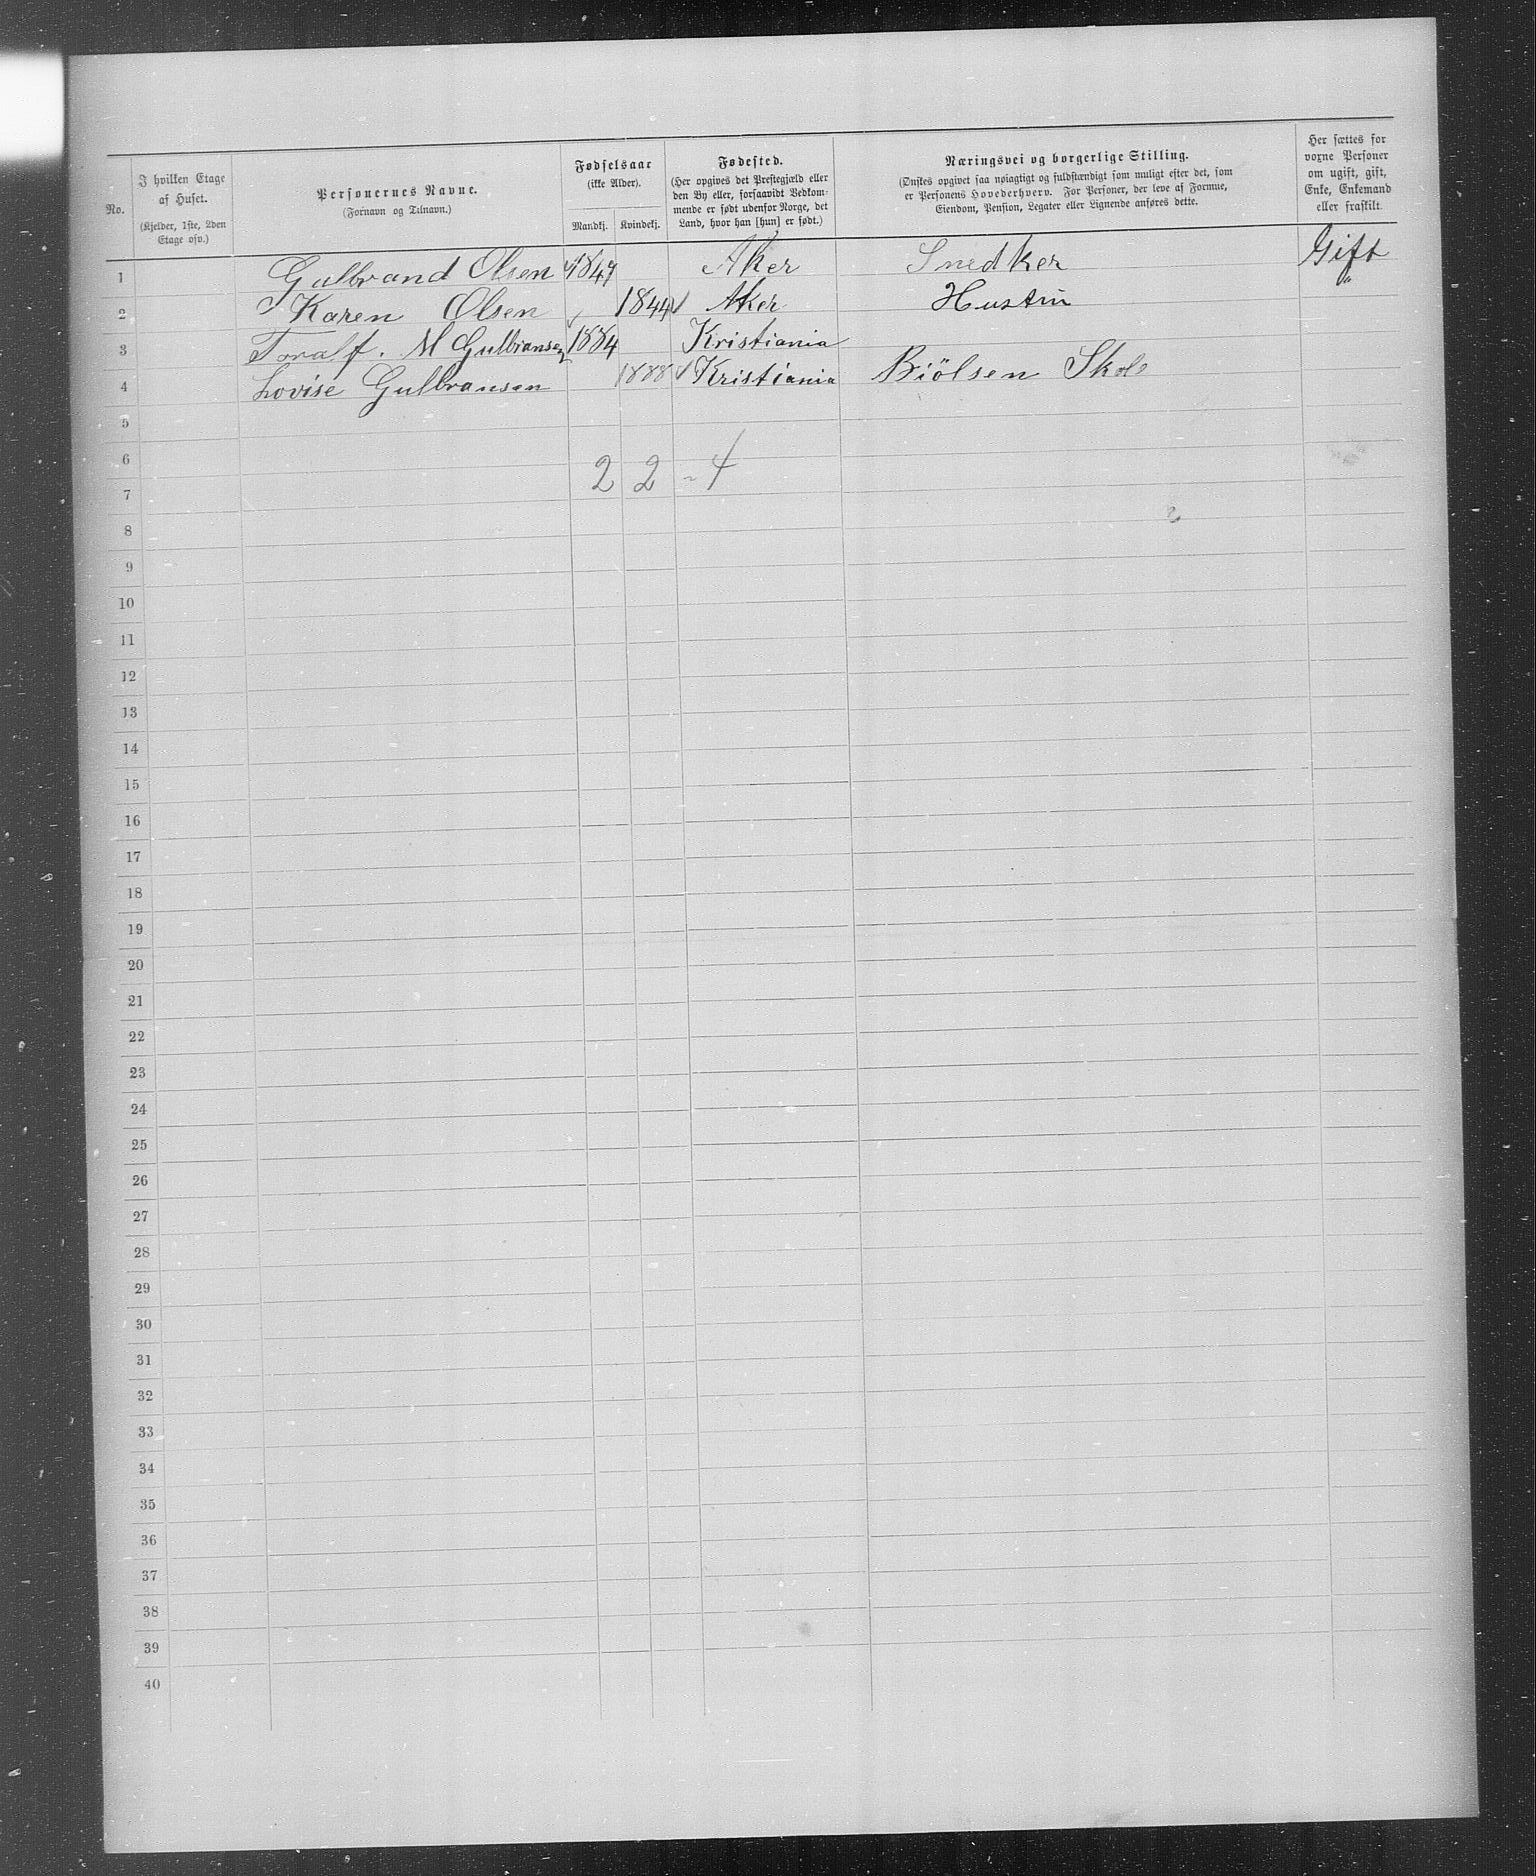 No. I hvilken Etage af Huset. (Kjelder, 1ste, 2den Etage osv.) Personernes Navne. (Fornavn og Tilnavn.) Fødselsaar (ikke Alder). Mandkj. Kvindekj. Fødested. (Her opgives det Prestegjæld eller den By eller, forsaavidt Vedkommende er født udenfor Norge, det Land, hvor han [hun] er født.) Næringsvei og borgerlige Stilling. (Ønskes opgivet saa nøiagtigt og fuldstændigt som muligt efter det, som er Personens Hovederhverv. For Personer, der leve af Formue, Eiendom, Pension, Legater eller Lignende anføres dette. Her sættes for voxne Personer om ugift, gift, Enke, Enkemand eller fraskilt.
1 Gulbrand Olsen 1849 Aker Snedker Gift
2 Karen Olsen 1844 Aker Hustru "
3 Toralf. M Gulbransen 1884 Kristiania
4 Lovise Gulbransen 1888 Kristiania Biölsen Skole
5
6
2 2 - 4
7
8
9
10
11
12
13
14
15
16
17
18
19
20
21
22
23
24
25
26
27
28
29
30
31
32
33
34
35
36
37
38
39
40